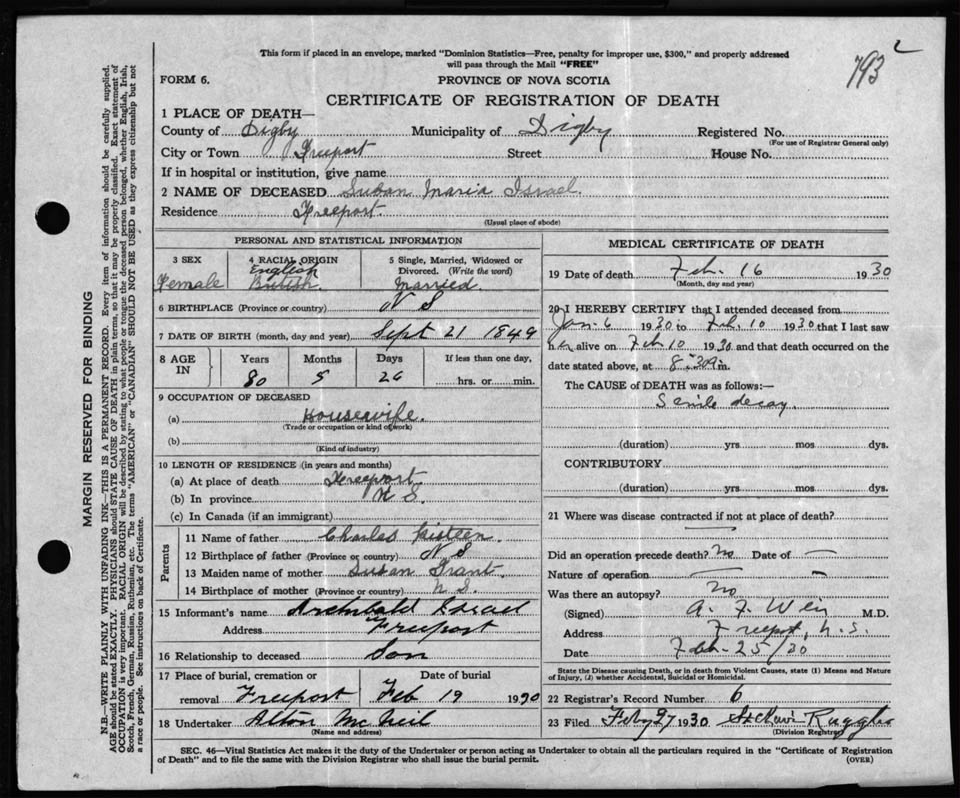 This form if placed in an envelope, marked "Dominion Statistics—Free, penalty for improper use, $300," and properly addressed
will pass through the Mail "FREE"
793 2
FORM 6.
PROVINCE OF NOVA SCOTIA
CERTIFICATE OF REGISTRATION OF DEATH
1 PLACE OF DEATH—
County of Digby Municipality of Digby Registered No.
(For use of Registrar General only)
City or Town Freeport Street House No.
If in hospital or institution, give name
2 NAME OF DECEASED Susan Maria Israel
Residence Freeport.
(Usual place of abode)
PERSONAL AND STATISTICAL INFORMATION
3 SEX 4 RACIAL ORIGIN 5 Single, Married, Widowed or
Divorced. (Write the word)
English
Female British. Married.
6 BIRTHPLACE (Province or country) N S
7 DATE OF BIRTH (month, day and year) Sept 21 1849
8 AGE IN Years Months Days If less than one day,
80 5 26 hrs. or min.
9 OCCUPATION OF DECEASED
(a) Housewife.
(Trade or occupation or kind of work)
(b)
(Kind of industry)
10 LENGTH OF RESIDENCE (in years and months)
(a) At place of death Freeport
(b) In province N S.
(c) In Canada (if an immigrant)
Parents
11 Name of father Charles
12 Birthplace of father (Province or country) N S
13 Maiden name of mother Susan Grant.
14 Birthplace of mother (Province or country) N. S.
15 Informant's name Archibald Israel
Address Freeport
16 Relationship to deceased Son
17 Place of burial, cremation or removal Date of burial
Freeport Feb 19 1930
18 Undertaker Alton McNeil
(Name and address)
MEDICAL CERTIFICATE OF DEATH
19 Date of death Feb. 16 1930
(Month, day and year)
20 I HEREBY CERTIFY that I attended deceased from
Jan 6 1930 to Feb. 10 1930 that I last saw
her alive on Feb 10 1930 and that death occurred on the
date stated above, at 8 m.
The CAUSE of DEATH was as follows:—
Senile decay
(duration) yrs. mos dys.
CONTRIBUTORY
(duration) yrs mos dys.
21 Where was disease contracted if not at place of death?
Did an operation precede death? No Date of —
Nature of operation —
Was there an autopsy? No
(Signed) A. F. Weir M.D.
Address Freeport, N.S.
Date Feb. 25/30
State the Disease causing Death, or in death from Violent Causes, state (1) Means and Nature
of Injury, (2) whether Accidental, Suicidal or Homicidal.
22 Registrar's Record Number 6
23 Filed Feby 27 1930
(Division Registrar)
SEC. 46—Vital Statistics Act makes it the duty of the Undertaker or person acting as Undertaker to obtain all the particulars required in the "Certificate of Registration
of Death" and to file the same with the Division Registrar who shall issue the burial permit.
(OVER)
MARGIN RESERVED FOR BINDING
N.B.—WRITE PLAINLY WITH UNFADING INK—THIS IS A PERMANENT RECORD. Every item of information should be carefully supplied.
AGE should be stated EXACTLY. PHYSICIANS should STATE CAUSE OF DEATH in plain terms, so that it may be properly classified. Exact statement of
OCCUPATION is very important. RACIAL ORIGIN will be described by stating to what people or tongue the deceased person belonged, whether English, Irish,
Scotch, French, German, Russian, Ruthenian, etc. The terms "AMERICAN" or "CANADIAN" SHOULD NOT BE USED as they express citizenship but not
a race or people. See instructions on back of Certificate.